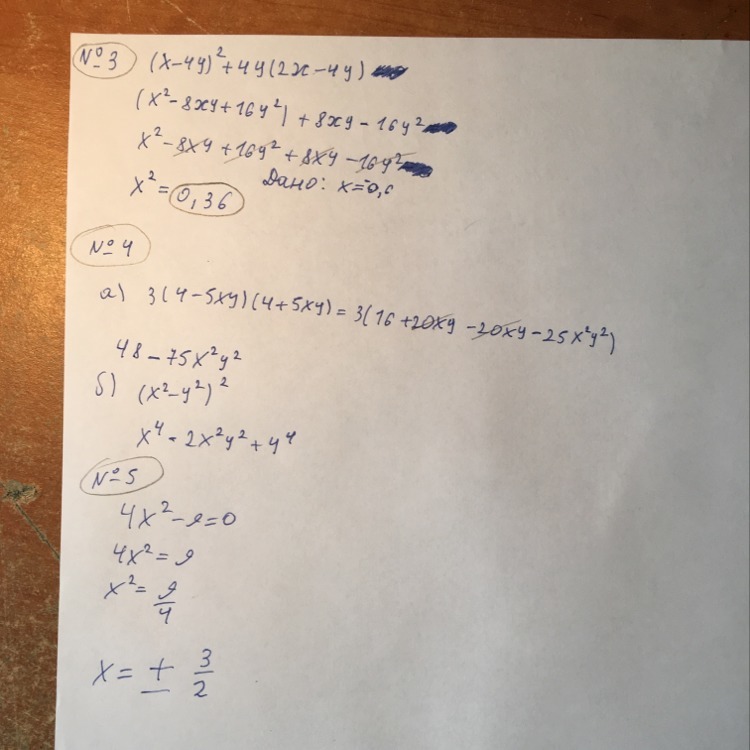 №3 (x-4y)²+4y(2x-4y)
(x²-8xy+16y²)+8xy-16y²
x²-8xy+16y²+8xy-16y²
x²=0,36 Дано: x=-0,6
№4
а) 3(4-5xy)(4+5xy)=3(16+20xy-20xy-25x²y²)
48-75x²y²
б) (x²-y²)²
x⁴-2x²y²+y⁴
№5
4x²-9=0
4x²=9
x²=9/4
x=± 3/2